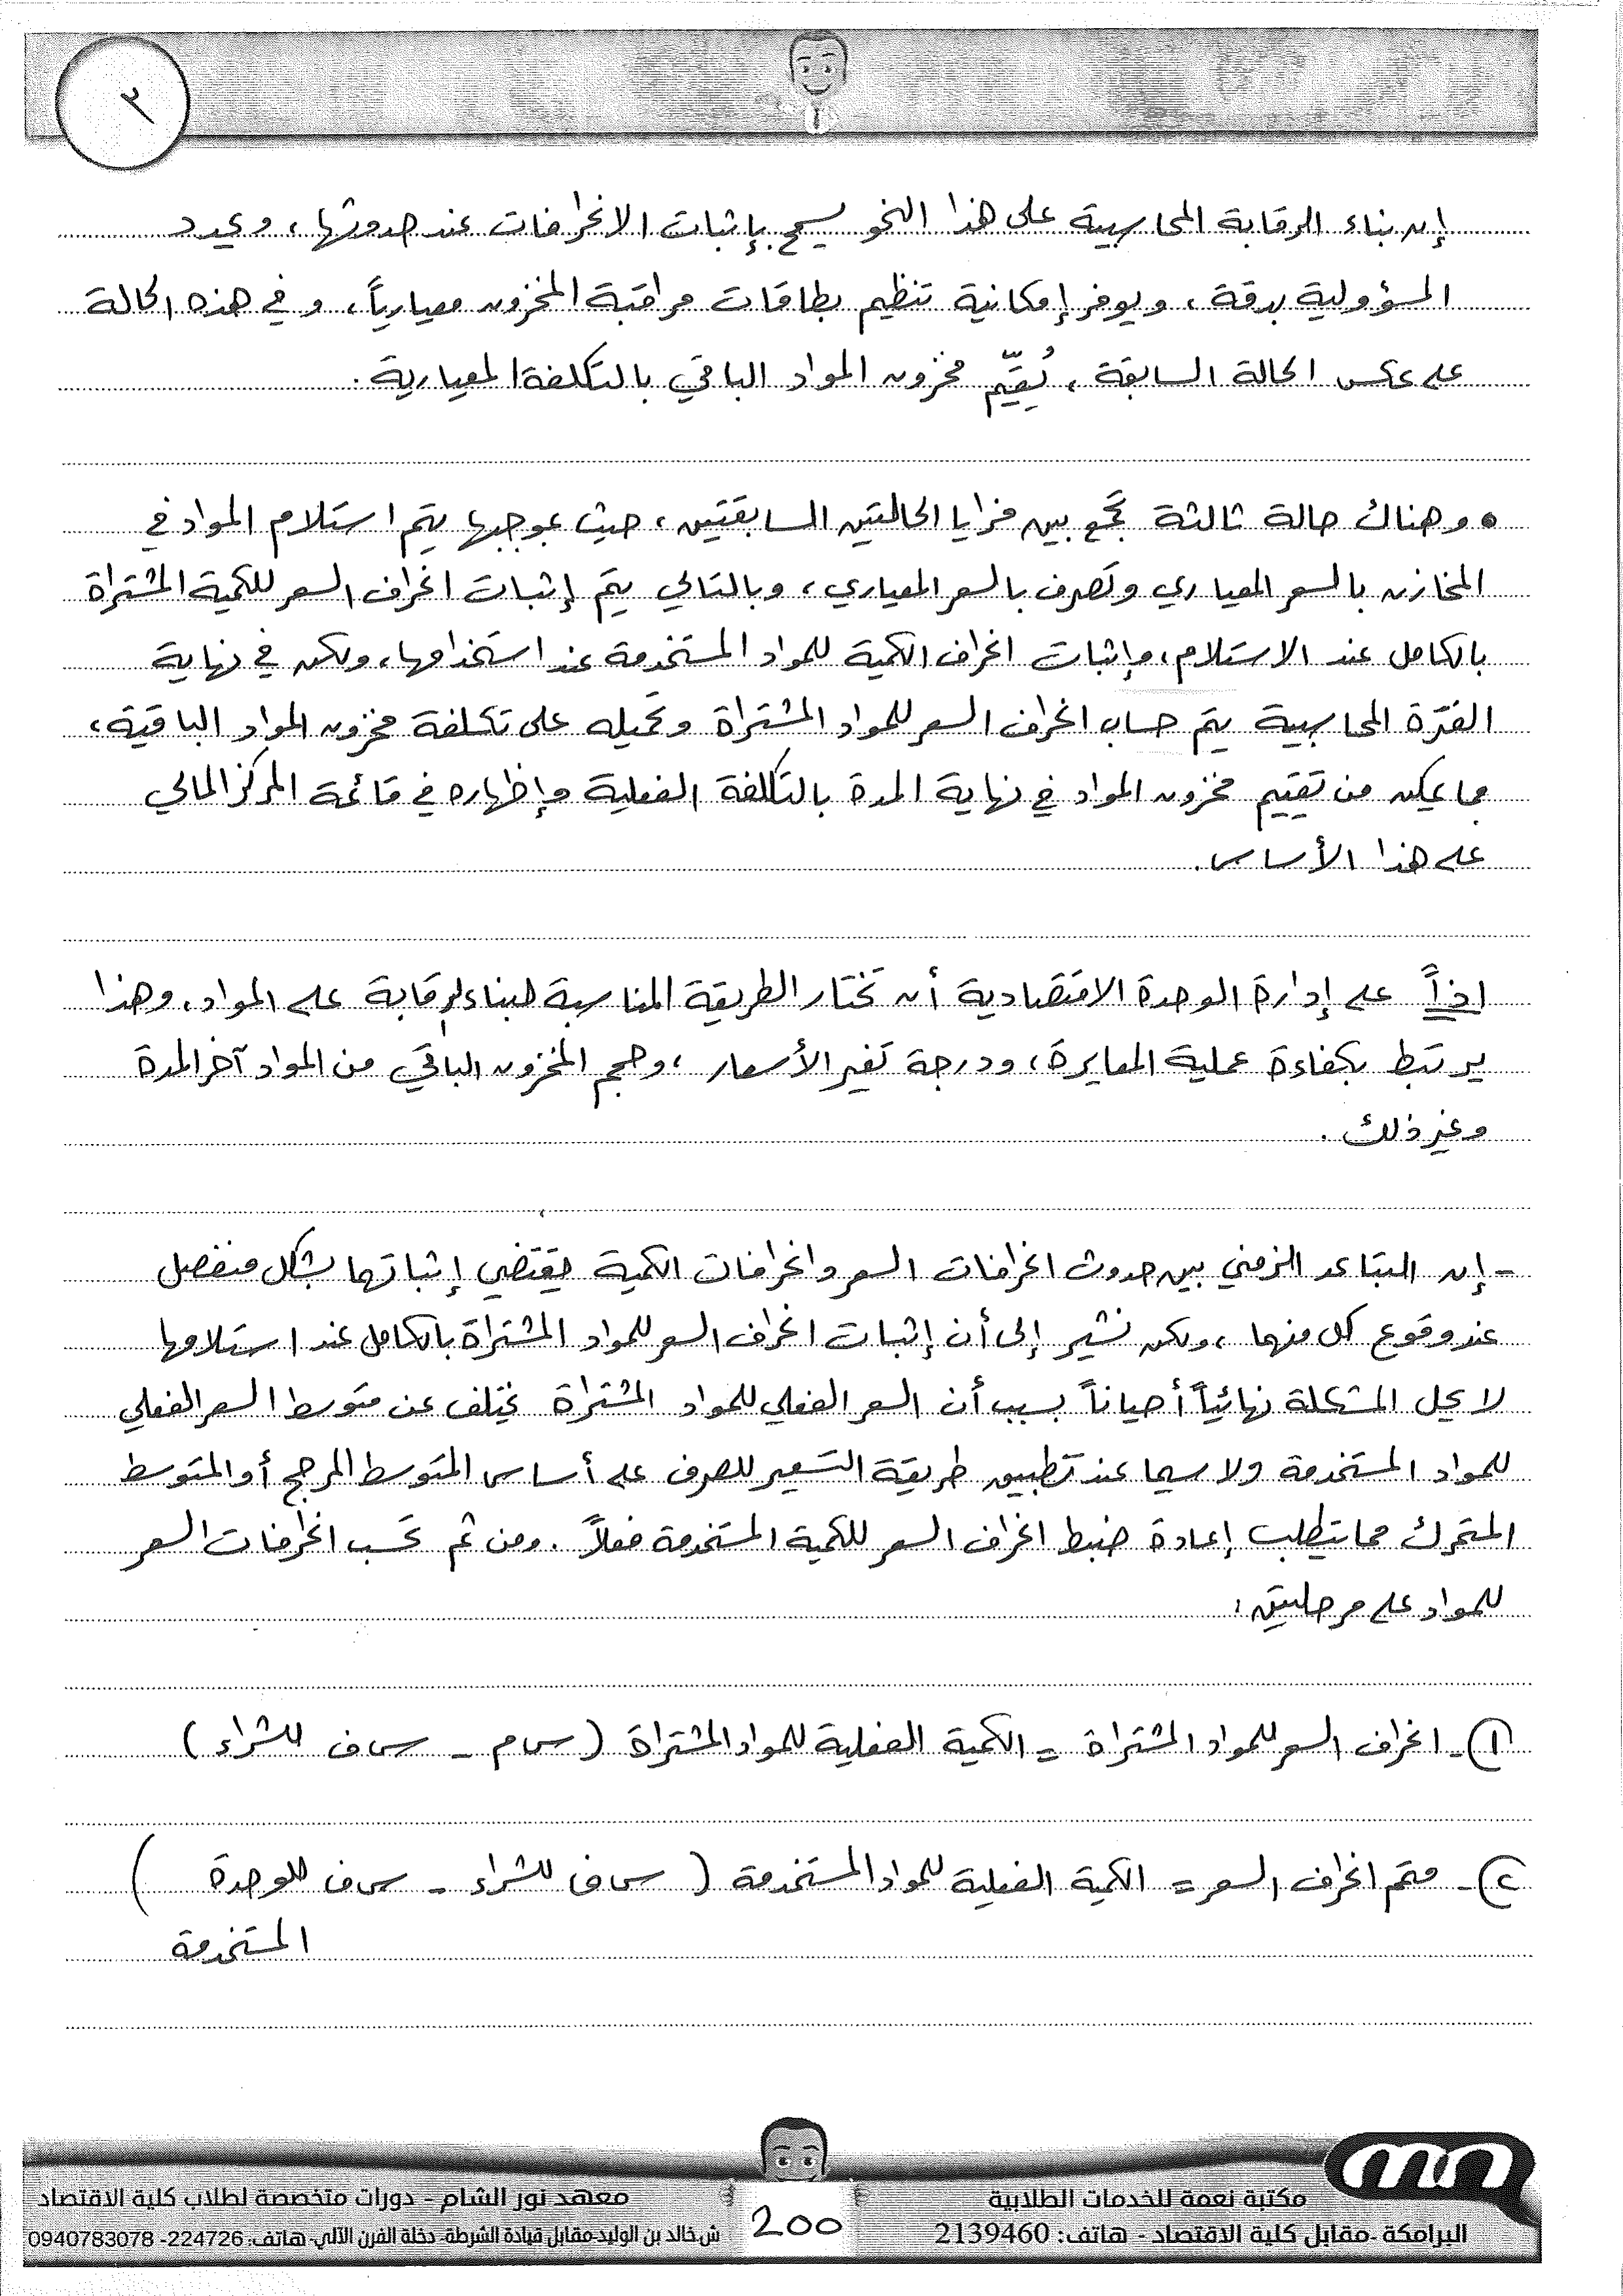 ٢
إن بناء الرقابة المحاسبية على هذا النحو يسمح بإثبات الانحرافات عند حدوثها، ويحدد
المسؤولية بدقة، ويوفر إمكانية تنظيم بطاقات مراقبة المخزون معيارياً، وفي هذه الحالة
على عكس الحالة السابقة، يُقيّم مخزون المواد الباقي بالتكلفة المعيارية.
• وهناك حالة ثالثة تجمع بين مزايا الحالتين السابقتين، حيث بموجبها يتم استلام المواد في
المخازن بالسعر المعياري وتصرف بالسعر المعياري، وبالتالي يتم إثبات انحراف السعر للكمية المشتراة
بالكامل عند الاستلام، وإثبات انحراف الكمية للمواد المستخدمة عند استخدامها، ولكن في نهاية
الفترة المحاسبية يتم حساب انحراف السعر للمواد المشتراة وتحميله على تكلفة مخزون المواد الباقية،
مما يمكن من تقييم مخزون المواد في نهاية المدة بالتكلفة الفعلية وإظهاره في قائمة المركز المالي
على هذا الأساس.
إذاً على إدارة الوحدة الاقتصادية أن تختار الطريقة المناسبة لبناء الرقابة على المواد، وهذا
يرتبط بكفاءة عملية المعايرة، ودرجة تغير الأسعار، وحجم المخزون الباقي من المواد آخر المدة
وغير ذلك.
- إن التباعد الزمني بين حدوث انحرافات السعر وانحرافات الكمية يقتضي إثباتهما بشكل منفصل
عند وقوع كل منهما، ولكن نشير إلى أن إثبات انحراف السعر للمواد المشتراة بالكامل عند استلامها
لا يحل المشكلة نهائياً أحياناً بسبب أن السعر الفعلي للمواد المشتراة يختلف عن متوسط السعر الفعلي
للمواد المستخدمة ولا سيما عند تطبيق طريقة التسعير للصرف على أساس المتوسط المرجح أو المتوسط
المتحرك مما يتطلب إعادة ضبط انحراف السعر للكمية المستخدمة فعلاً. ومن ثم تحسب انحرافات السعر
للمواد على مرحلتين:
١- انحراف السعر للمواد المشتراة = الكمية الفعلية للمواد المشتراة (س م - س ف للشراء)
٢- متمم انحراف السعر = الكمية الفعلية للمواد المستخدمة (س ف للشراء - س ف للوحدة
المستخدمة)
مكتبة نعمة للخدمات الطلابية
البرامكة - مقابل كلية الاقتصاد - هاتف: 2139460
200
معهد نور الشام - دورات متخصصة لطلاب كلية الاقتصاد
ش.خالد بن الوليد-مقابل قيادة الشرطة- دخلة الفرن الآلي- هاتف: 224726- 0940783078